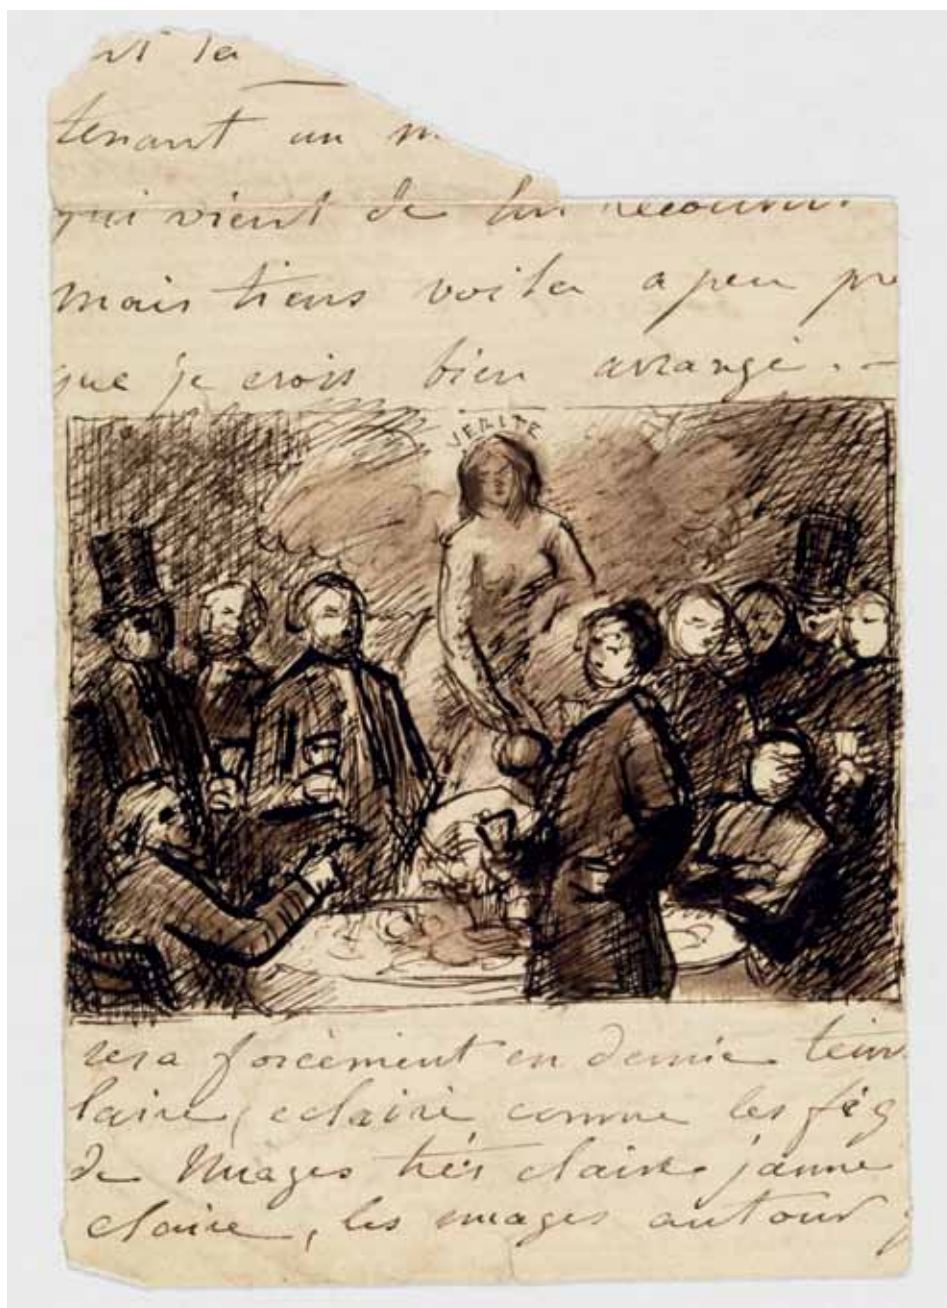 la
tenant un
qui vient de
mais tiens voila a peu pre
que je crois bien arrangé. -
VERITE
sera forcément en demie tein
laire, eclairé comme les fig
de nuages très claire jaune
claire, les nuages autour